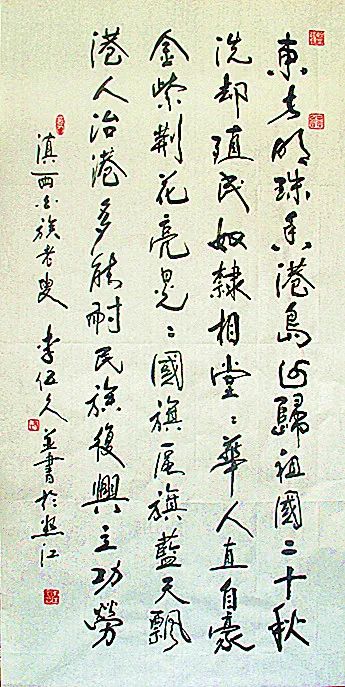 東方明珠香港島歸祖國二十秋
洗却殖民奴隸相堂〻華人直自豪
金紫荆花亮晃〻國旗區旗藍天飄
港人治港多能耐民族復興立功勞
滇西白族老叟 李伍久並書於江